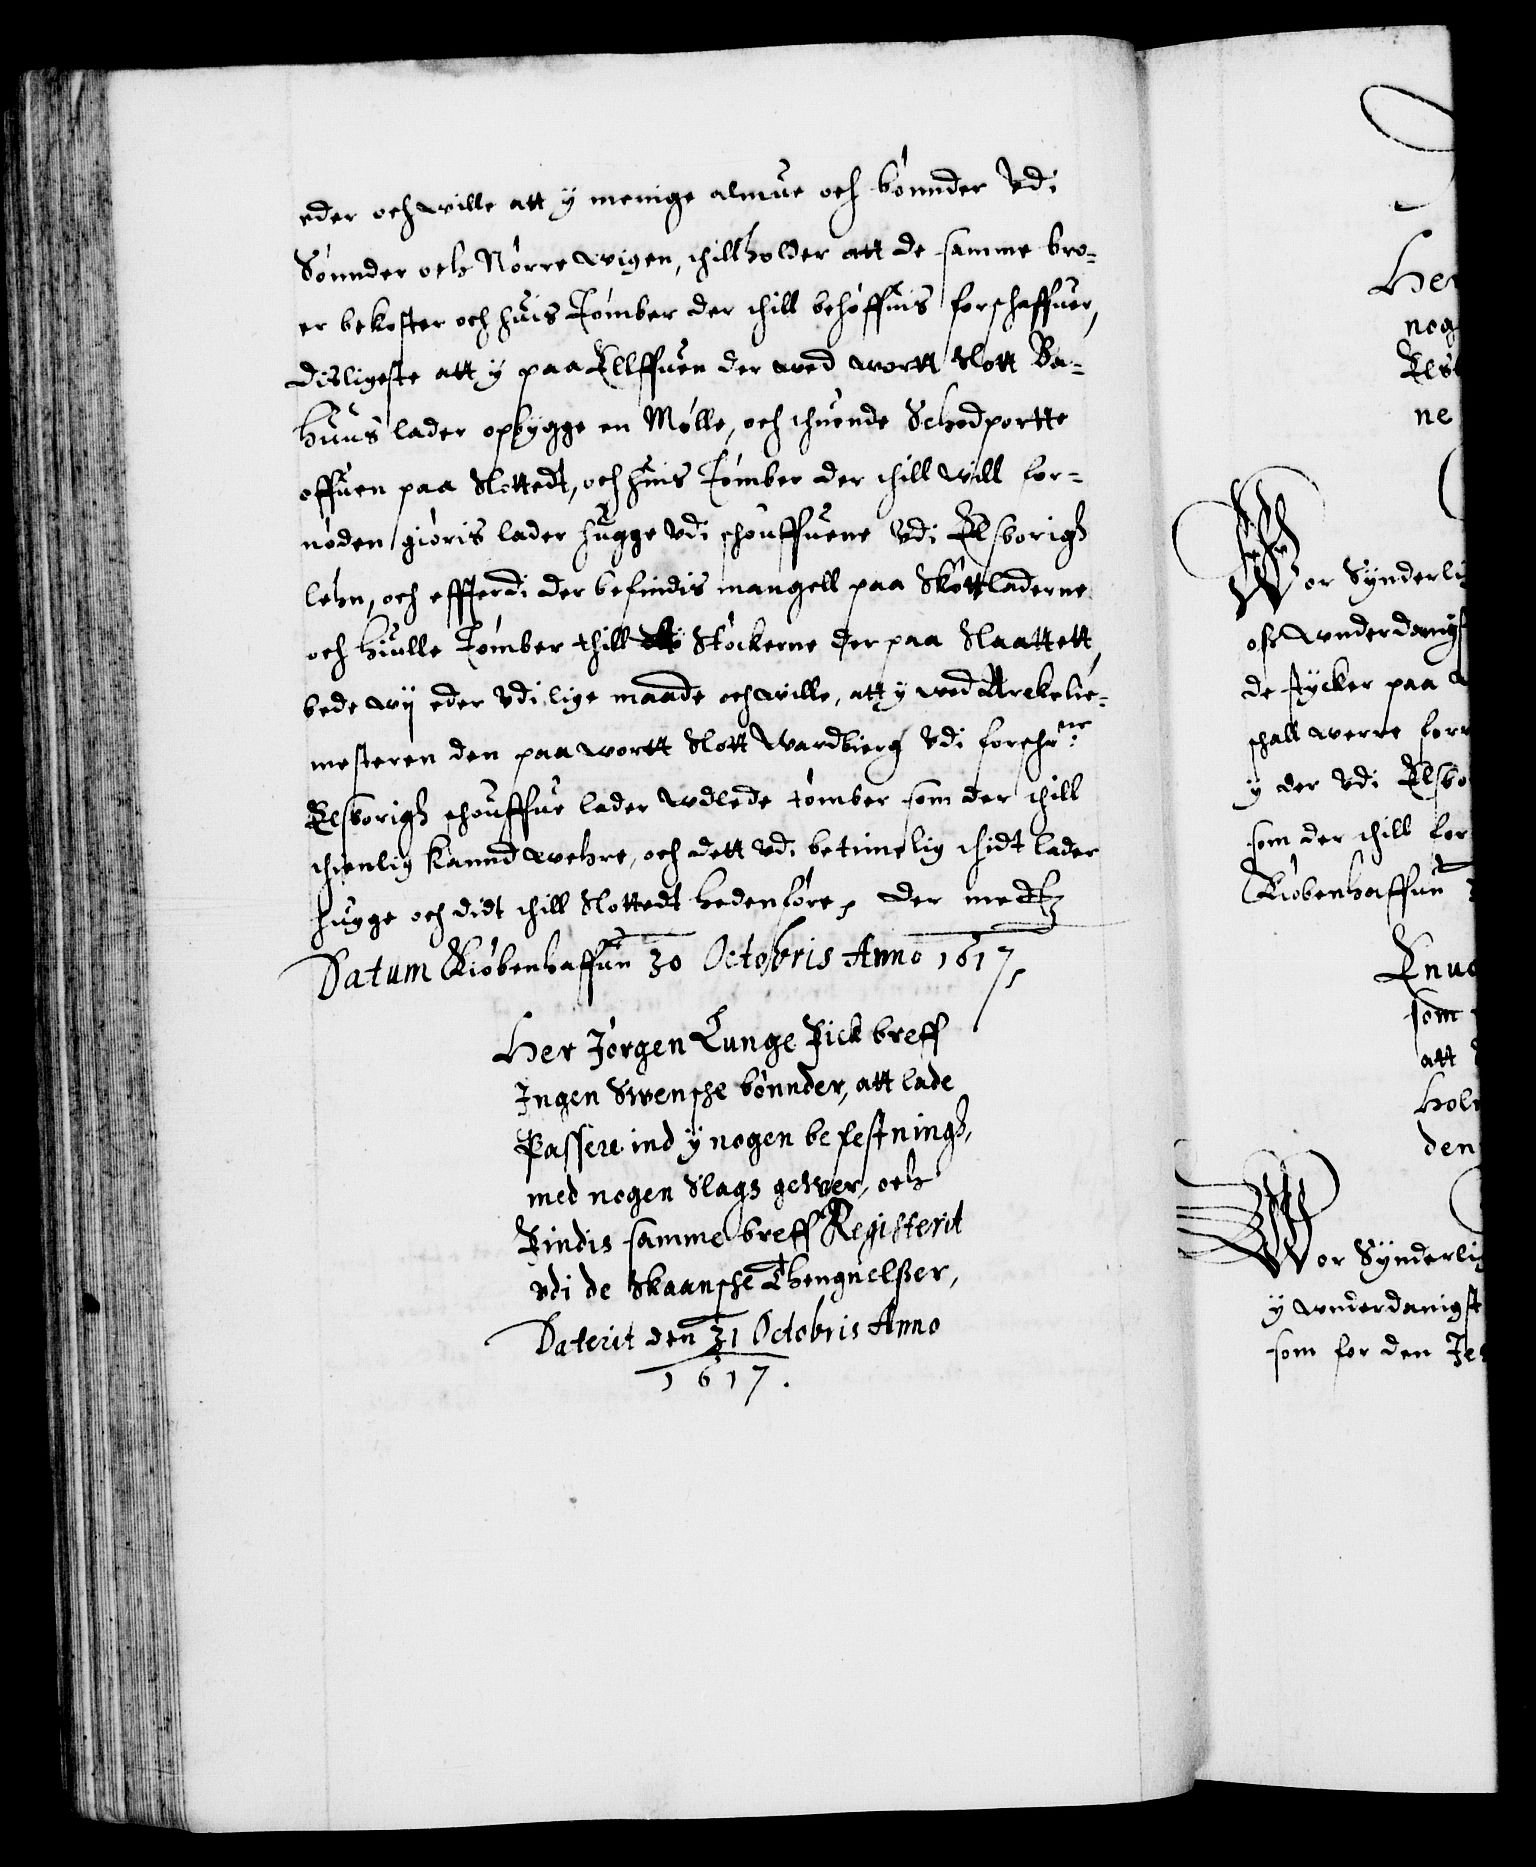 eder och wille att y menige almue och bønnder Vdi
Sønnder och Nørre wigen, thillholder att de samme bro-
er bekoster och huis Tømber der thill behøffuis forschaffuer,
disligeste att y paa Ellffuen der wed wortt Slott Ba-
huus lader opbygge en Mølle, och thuende Schodportte
offuen paa Slottedt, och huis Tømber der thill will for-
nøden giøris lader hugge Vdi schouffuene Vdi Elsborigh
lehn, och effterdi der befindis mangell paa Skottladerne
och hiulle Tømber thill Støckerne der paa Slaattett,
bede wij eder Vdi lige maade och wille, att y wed Arckelie-
mesteren den paa wortt Slott Wardbierg Vdi forschrne:
Elsborigh schouffue lader Wdlede tømber som der thill
thienlig kannd wehre, och dett Vdi betimelig thidt lader
hugge och didt thill Slottedt hedenføre, Der medtz
Datum Kiøbenhaffun 30 Octobris Anno 1617,
Her Jørgen Lunge Fick breff
Ingen Swensche bønnder, att lade
Passere ind y nogen befestningh,
med nogen Slags geWer, och
Findis samme breff Registerit
vdi de Skaansche Thengnelßer,
Daterit den 31 Octobris Anno
1617.
Her
nog
Els
ne
Wor Synderli
oss wnderdanigst
de stycker paa
schall werre forr
y der Vdi Elsbo
som der thill for
Kiøbenhaffun
Knud
som
att
Hol
den
Wor Synderlig
y wnderdanigst
som for den Je